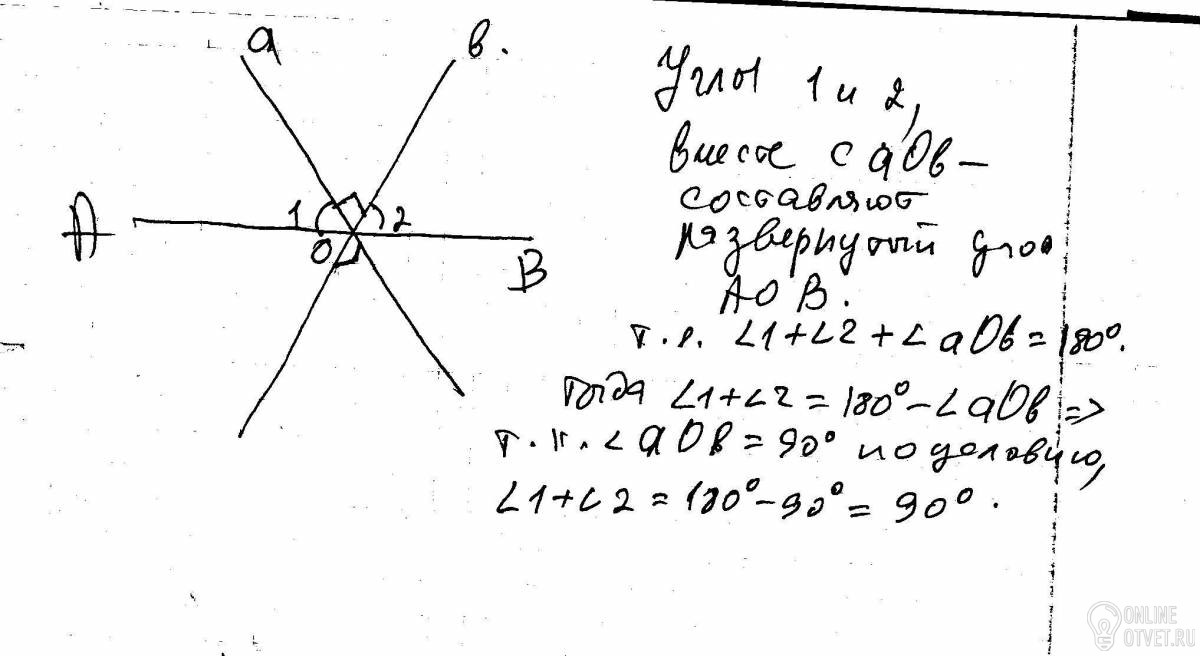 a
в.
Углы 1 и 2,
вместе с aOb –
составляют
развернутый угол
AOB.
т.е. ∠1+∠2+∠aOb=180°.
Тогда ∠1+∠2=180°–∠aOb =>
т.к. ∠aOb=90° по условию,
∠1+∠2=180°–90°=90°.
A
1
2
O
B
ONLINE
OTVET.RU